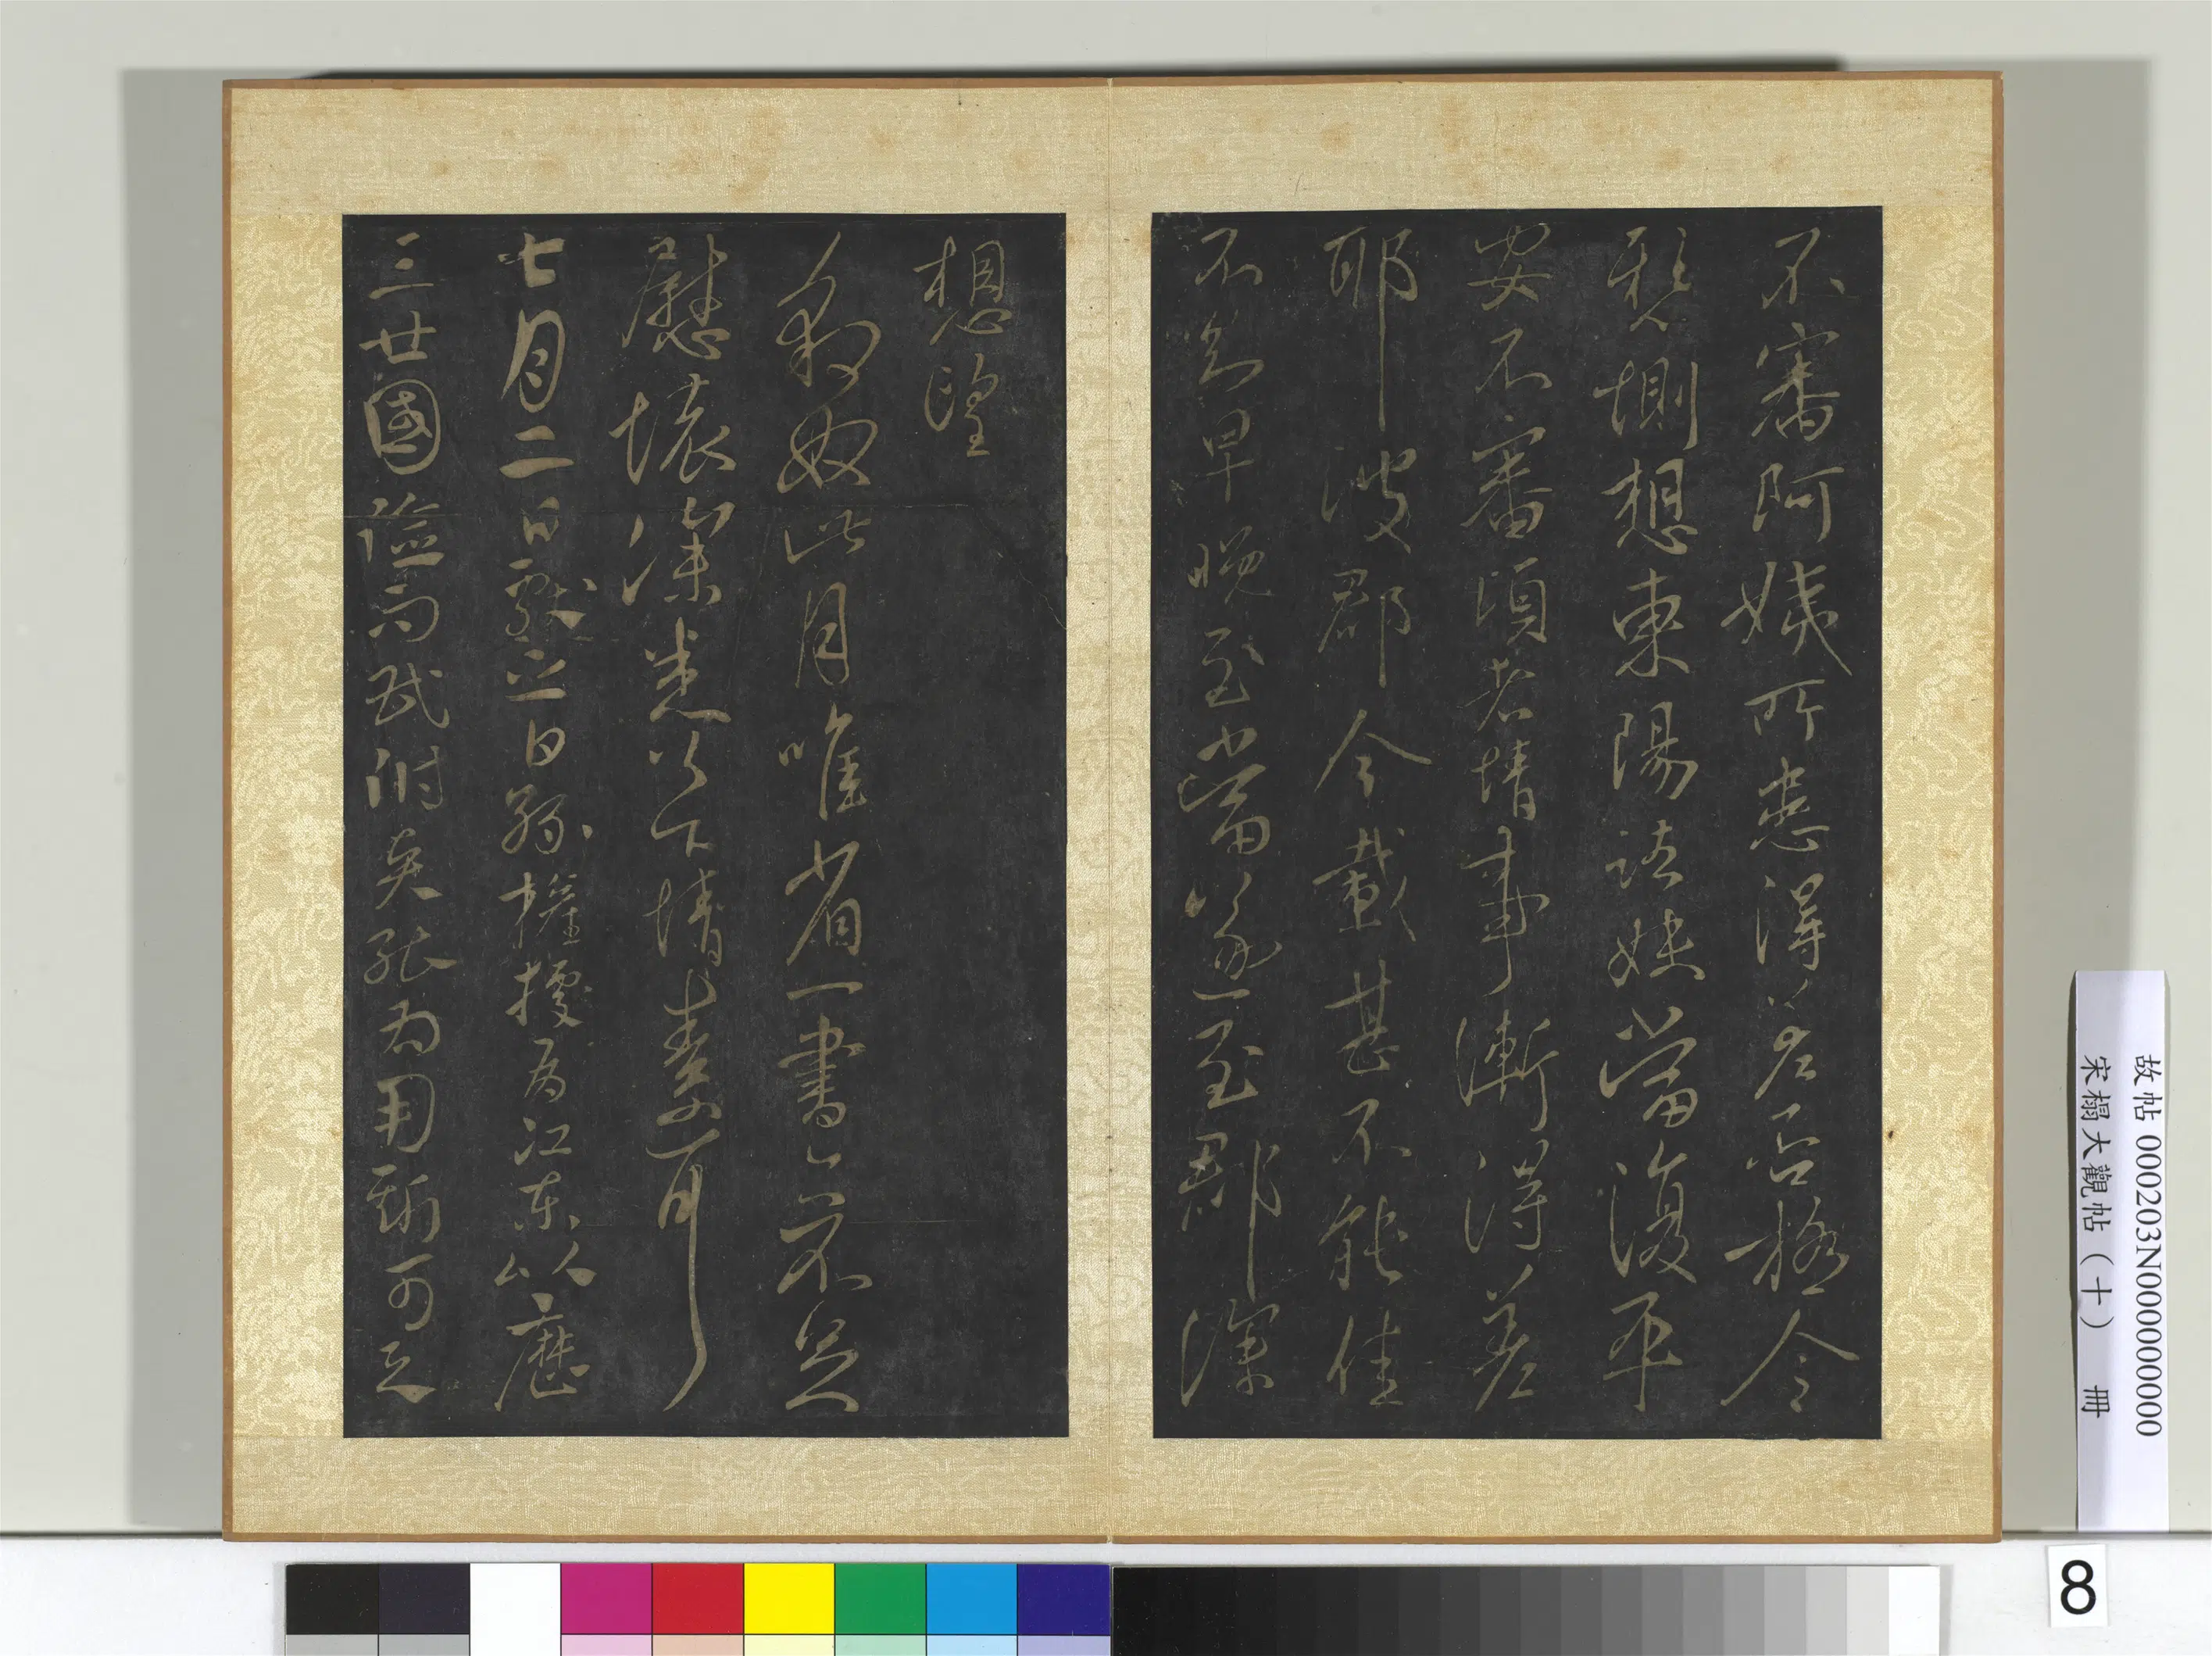 不審阿姨所患得差否極令
悬惻想東陽諸妹當復平
安不審頃者情事漸得差
耶彼郡今載甚不能佳
不知早晚至當遂至郡深
想望
豹奴此月唯省一書亦不足
慰懷深悉以下情素不可耳
七月二日獻之白孫權據有江東以歷
三世國險而民附矣張為用斯可之
故帖 000203N000000000
宋榻大觀帖（十） 冊
8